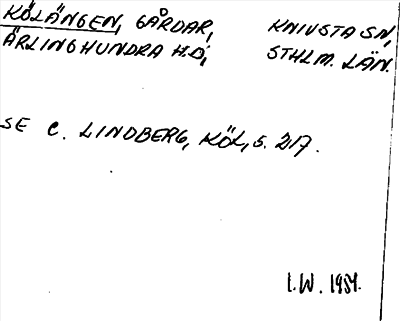 KÖLÄNGEN, GÅRDAR, KNIVSTA SN,
ÄRLINGHUNDRA H.D, STHLM. LÄN.
SE C. LINDBERG, KÖL, S. 217.
I.W. 1959.